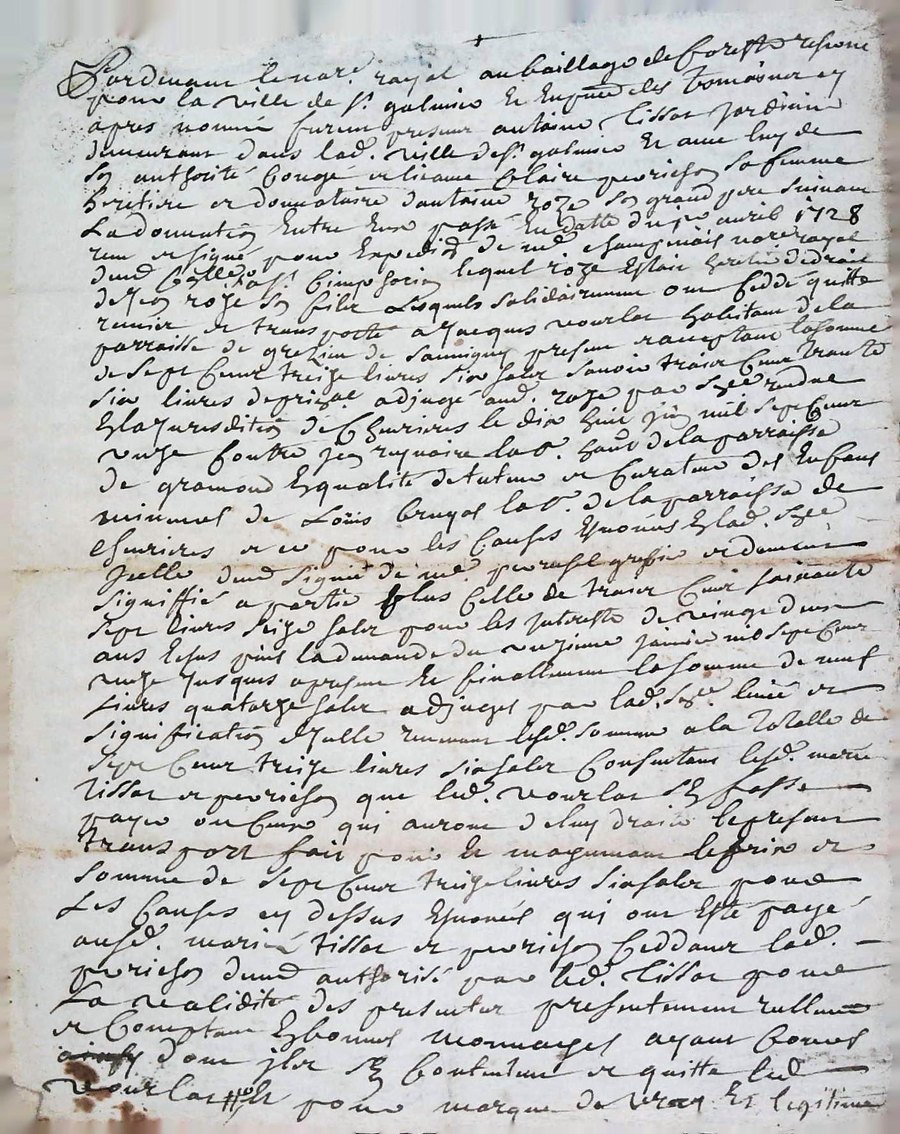 Pardevant le not. royal au bailliage de forestz reserve
pour la ville de st. galmier et en pnce des temoins en
apres nommé furent presens antoine tissot jardinier
demeurant dans lad. ville de st. galmier et avec luy de
son authorité congé et licence claire perichon sa femme
heritiere et donnataire dantoine roze son grand pere suivant
La donnation entre eux passé en datte du avril 1728
royal
lequel roze estoit heritier de droit
de roze son fils Lesquels solidairement ont ceddé quitté
remis et transporté a jacques vourlat habitant de la
parroisse de present et acceptant la somme
de sept cent treize livres six solz savoir trois cent trante
six livres de prial. adjugé aud. roze par rendue
en la jurisdition de Chevrieres le dix huit mil sept cent
onze contre reynaud lab. de la parroisse
de gramond en qualité de tuteur et curateur des enfans
mineurs de Loüis bruyas lab. de la parroisse de
chevrieres et ce pour les causes enoncés en lad. sce
icelle signé de me. greffier et dument
signiffié a partie plus celle de trois cent soixante
sept livres seize solz pour les interestz de vingt deux
ans echus puis la demande du onzieme janvier mil sept cent
onze jusques a present et finallement la somme de neuf
Livres quatorze solz adjuges par lad. sce levée et
signification dicelle revenant lesd. sommes a la totalle de
sept cent treize livres six solz consentant lesd. mariés
tissot et perichon que led. vourlat sen fasse
payer ou ceux qui auront de luy droit le present
transport fait pour et moyennant le prix et
somme de sept cent treize livres six solz pour
Les causes cy dessus enoncés qui ont esté payé
ausd. mariés tissot et perichon ceddans lad.
perichon authorisé par led. tissot pour
La validité des presentes presentement reellement
et comptant en bonnes monnoyes ayant cours
dont ils se contentent et quitte led.
vourlat et pour marque de vray et legitime